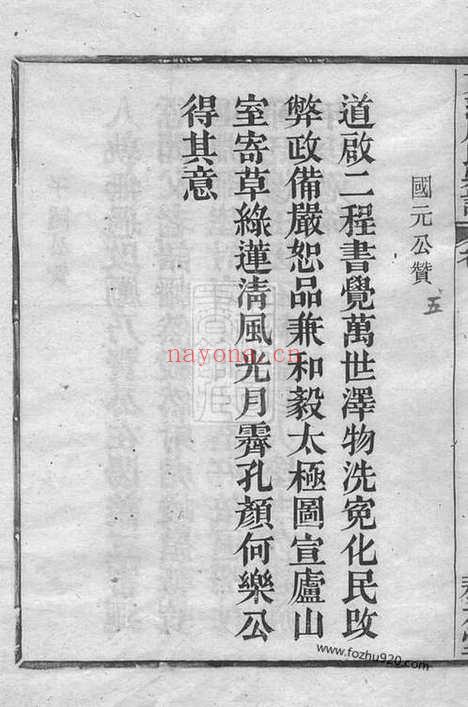 國元公贊
五
道啟二程書覺萬世澤物洗寃化民攺
弊政備嚴恕品兼和毅太極圖宣廬山
室寄草綠蓮清風光月霽孔顏何樂公
得其意
nayona.cn
www.fozhu920.com